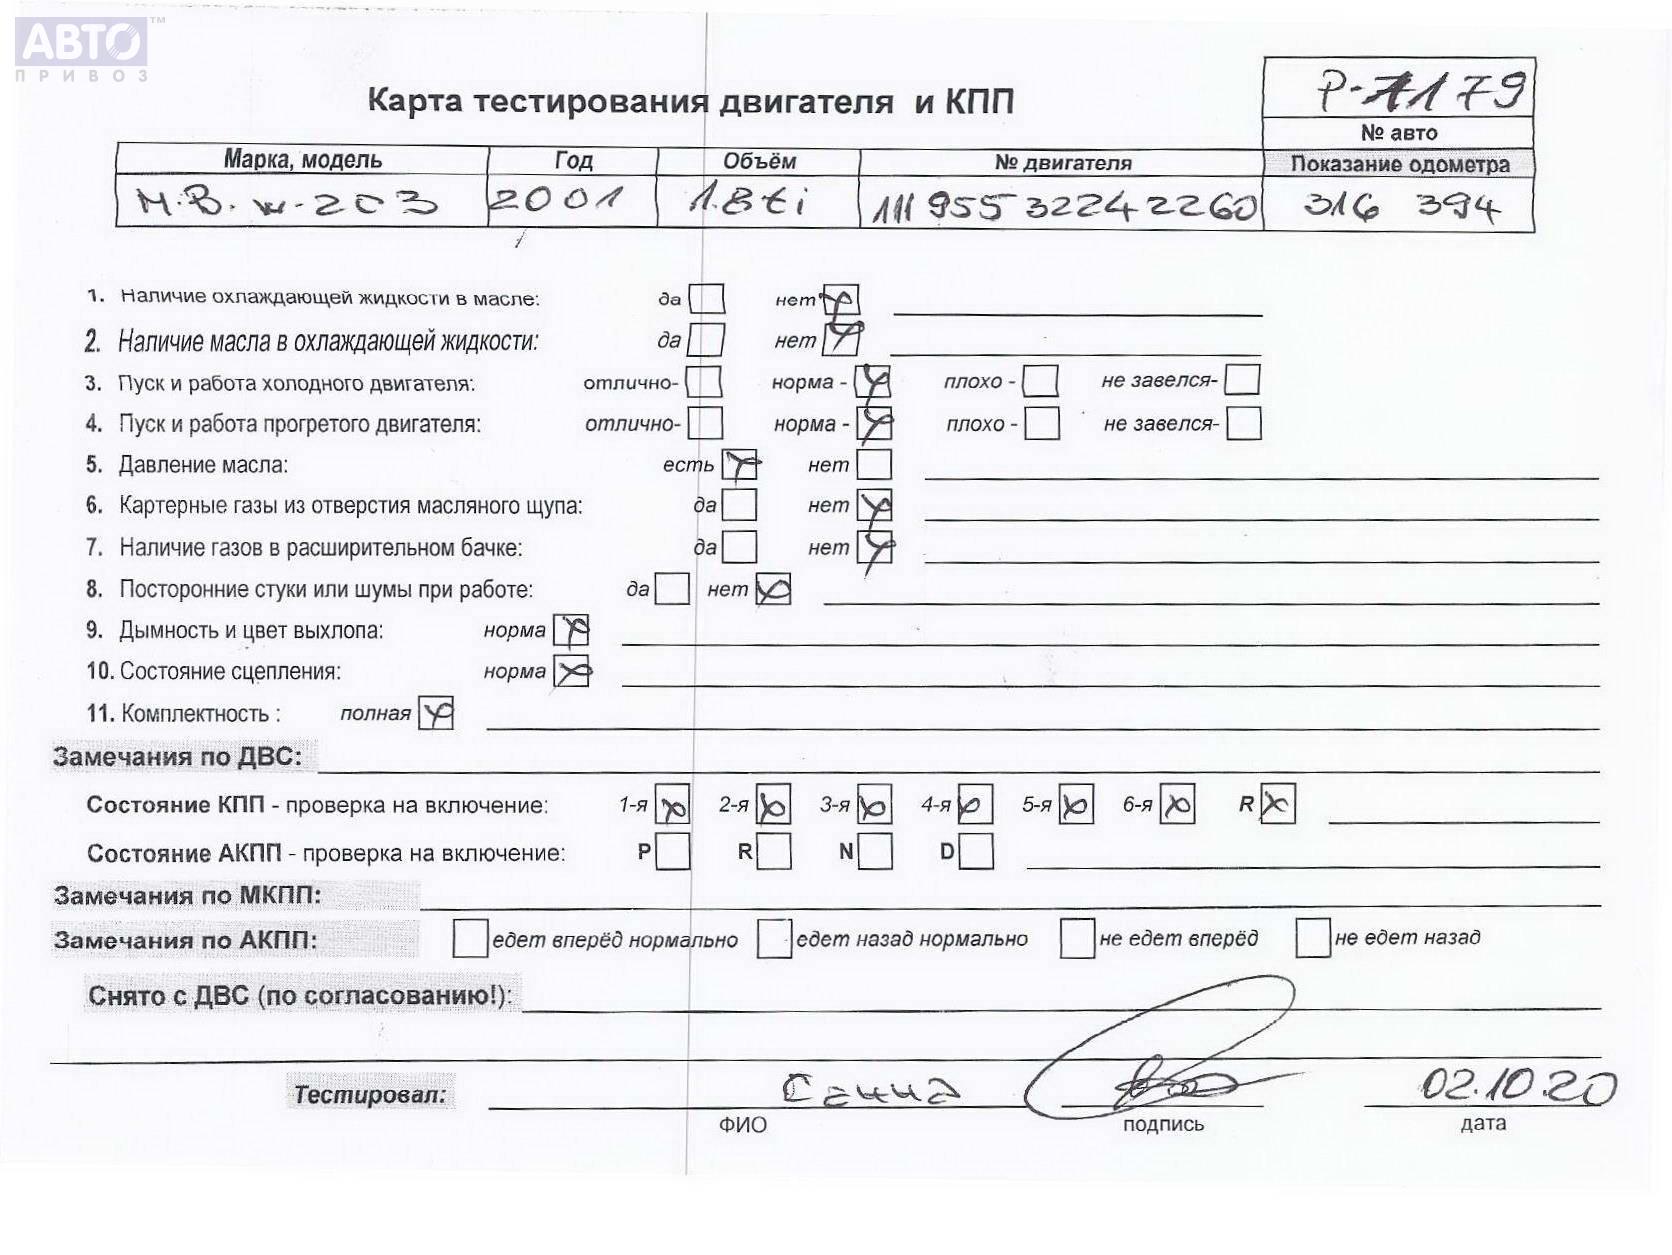 АВТО™
ПРИВОЗ
Карта тестирования двигателя и КПП
№ авто
Марка, модель Год Объём № двигателя Показание одометра
M.B. w-203 2001 1.8ti 111 955 32242260 316 394
1. Наличие охлаждающей жидкости в масле: да нет
2. Наличие масла в охлаждающей жидкости: да нет
3. Пуск и работа холодного двигателя: отлично- норма - плохо - не завелся-
4. Пуск и работа прогретого двигателя: отлично- норма - плохо - не завелся-
5. Давление масла: есть нет
6. Картерные газы из отверстия масляного щупа: да нет
7. Наличие газов в расширительном бачке: да нет
8. Посторонние стуки или шумы при работе: да нет
9. Дымность и цвет выхлопа: норма
10. Состояние сцепления: норма
11. Комплектность : полная
Замечания по ДВС:
Состояние КПП - проверка на включение: 1-я 2-я 3-я 4-я 5-я 6-я R
Состояние АКПП - проверка на включение: P R N D
Замечания по МКПП:
Замечания по АКПП: едет вперёд нормально едет назад нормально не едет вперёд не едет назад
Снято с ДВС (по согласованию!):
Тестировал: 02.10.20
ФИО подпись дата